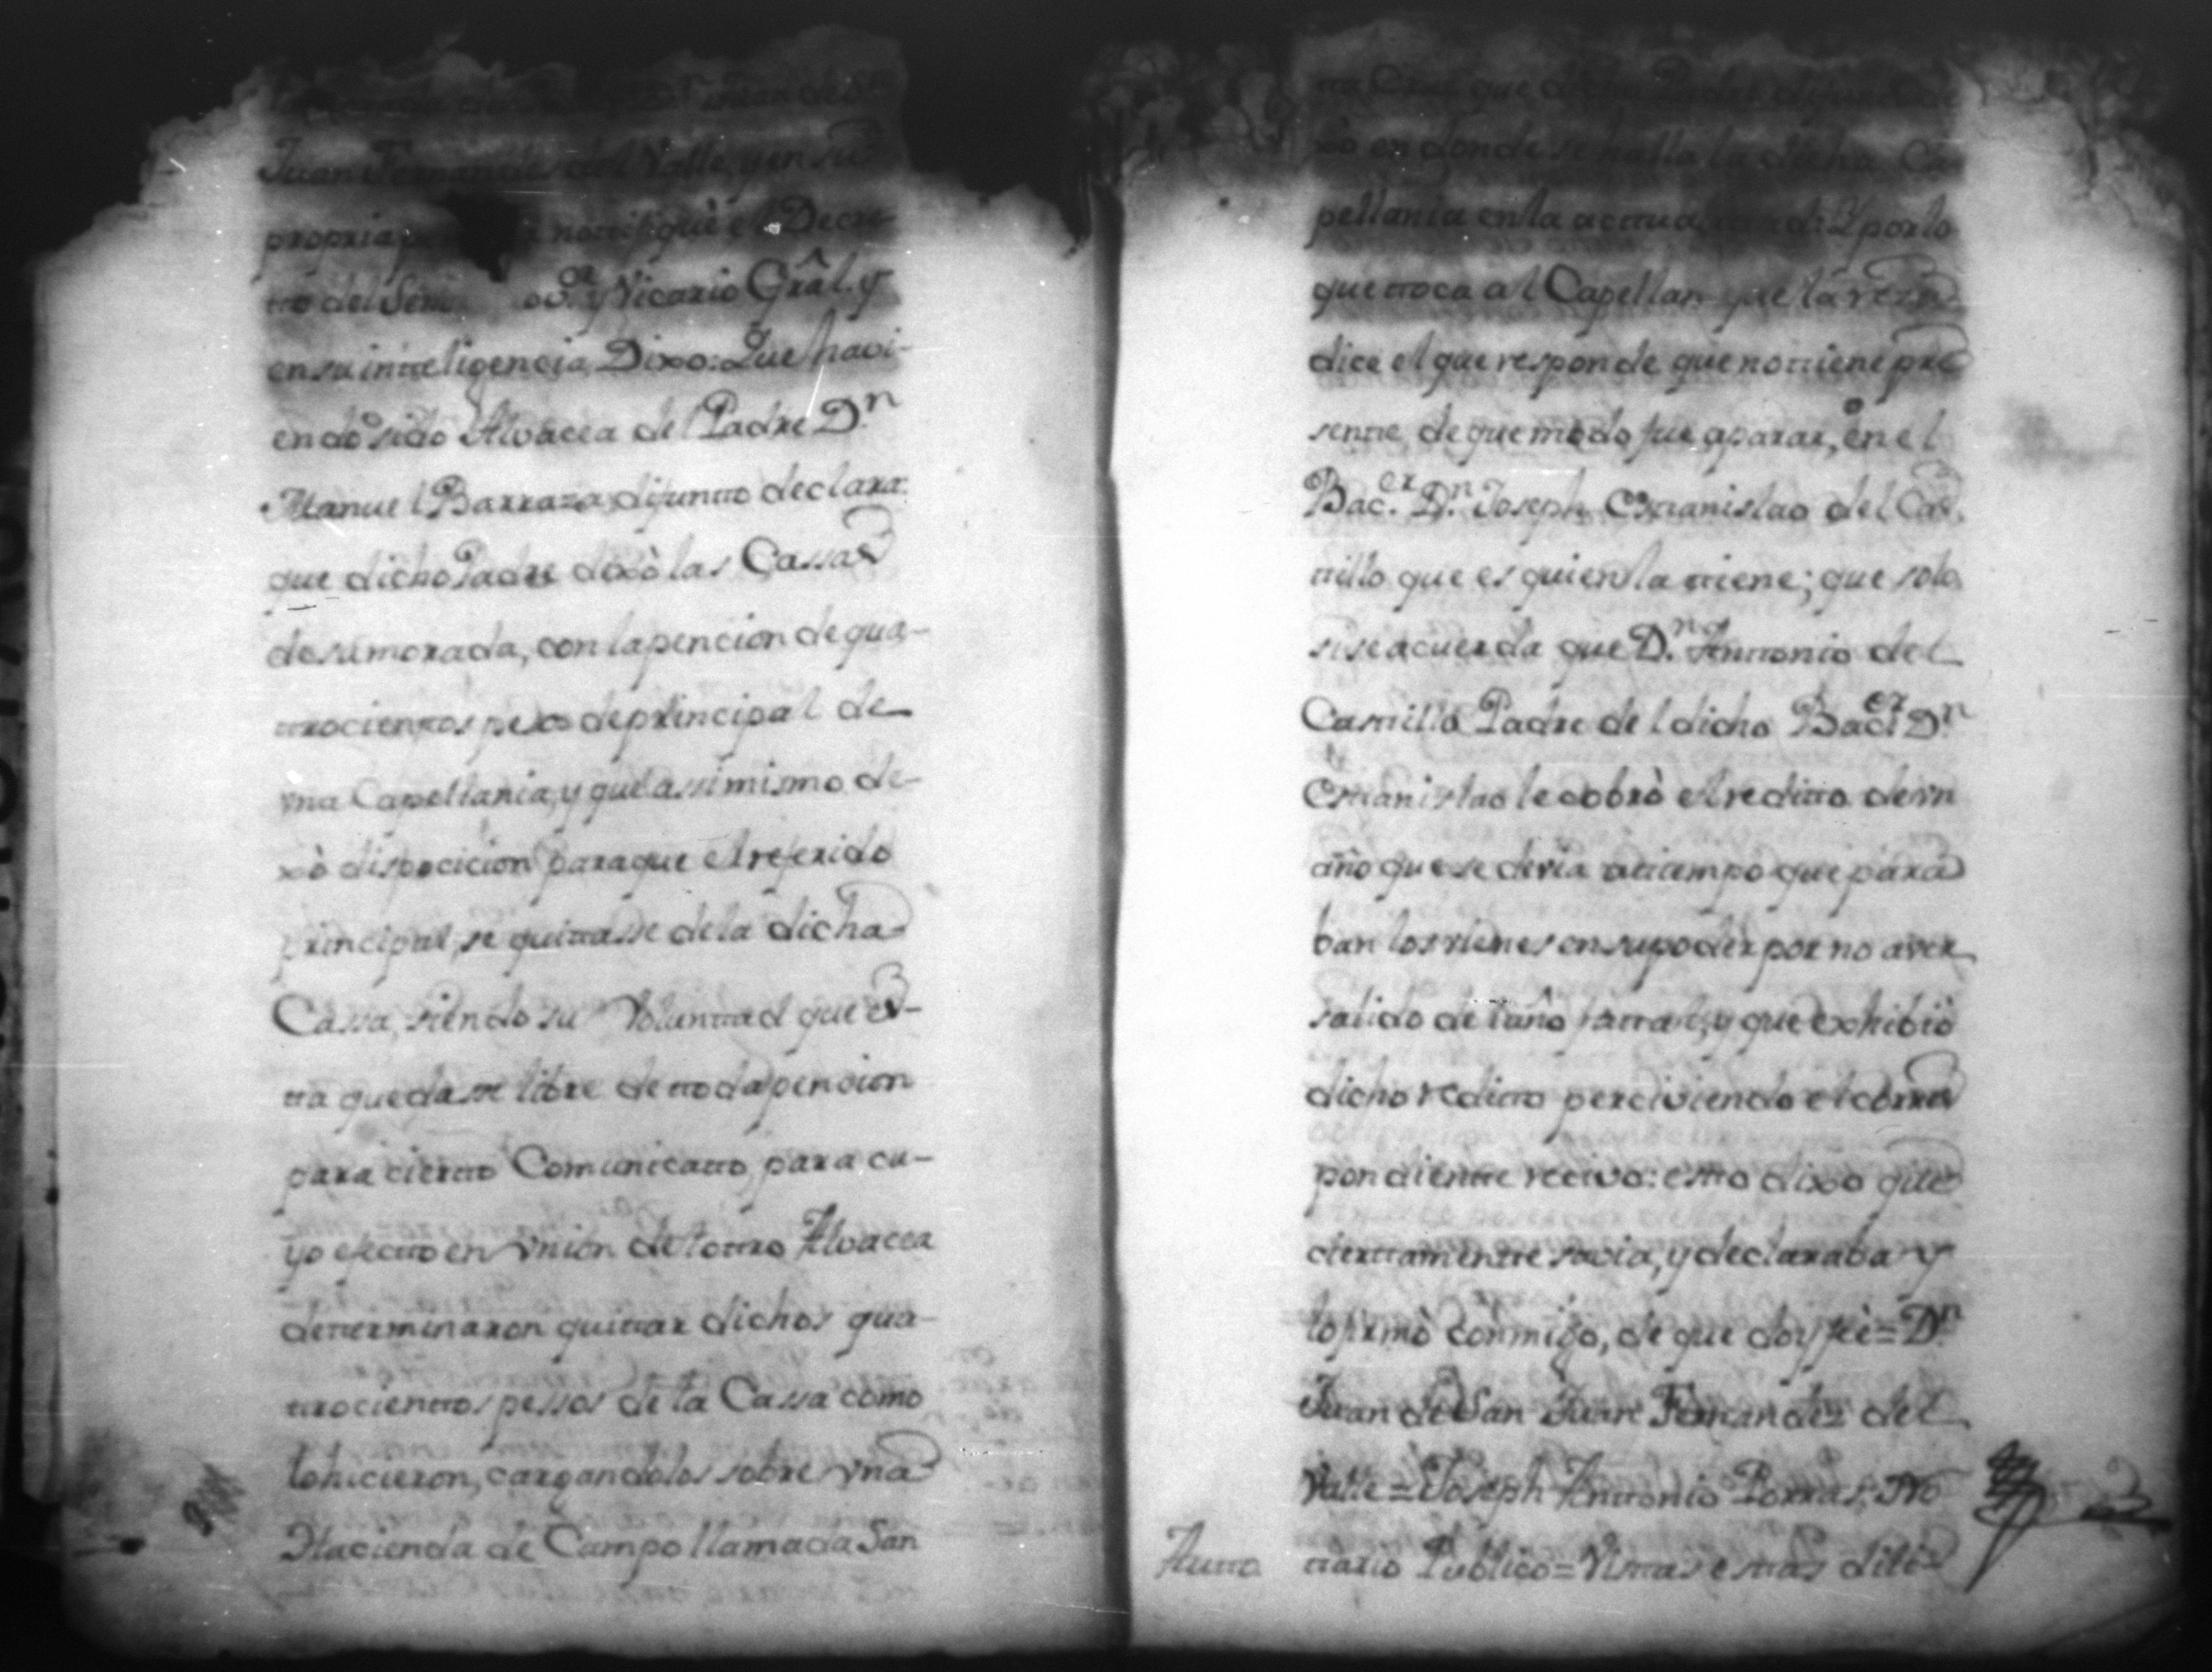 Juan de Sn
Juan Fernandes del Valle, y en su
propria notifiquè el Decre-
to del Señor Vicario Grâl. y
en su inteligencia, Dixo: Que havi-
endo sido Alvacea del Padre Dn.
Manuel Barraza difunto declara
que dicho Padre dexò las Cassas
de su morada, con la pencion de qua-
trocientos pesos de principal de
vna Capellania, y que assimismo de-
xò dispocicion para que el referido
principal, se quitasse de la dicha
Cassa, siendo su Voluntad que es-
ta quedasse libre de toda pension
para cierto Comunicato, para cu-
yo efecto en vnion del otro Alvacea
determinaron quitar dichos qua-
trocientos pessos de la Cassa como
lo hicieron, cargandolos sobre vna
Hacienda de Campo llamada San
ta Cruz que dicho Padre difunto de
xò en donde se halla la dicha Ca
pellania en la actualidad: Y por lo
que toca al Capellan que la reza
dice el que responde que no tiene pre
sente, de que modo fue a parar, en el
Bacer. Dn. Joseph Estanislao del Cas
tillo que es quien la tiene; que solo
si se acuerda que Dn. Antonio del
Castillo Padre del dicho Bacer. Dn.
Estanislao le cobrò el redito de vn
año que se devia a tiempo que para
ban los vienes en su poder por no aver
salido del año fatal, y que exhibiò
dicho redito perciviendo el corres
pondiente recivo: esto dixo que
ciertamente savia, y declaraba y
lo firmò conmigo, de que doy feè = Dn.
Juan de San Juan Fernandez del
Valle = Joseph Antonio Porras, No
Auto tario Publico = Vistas estas dili-